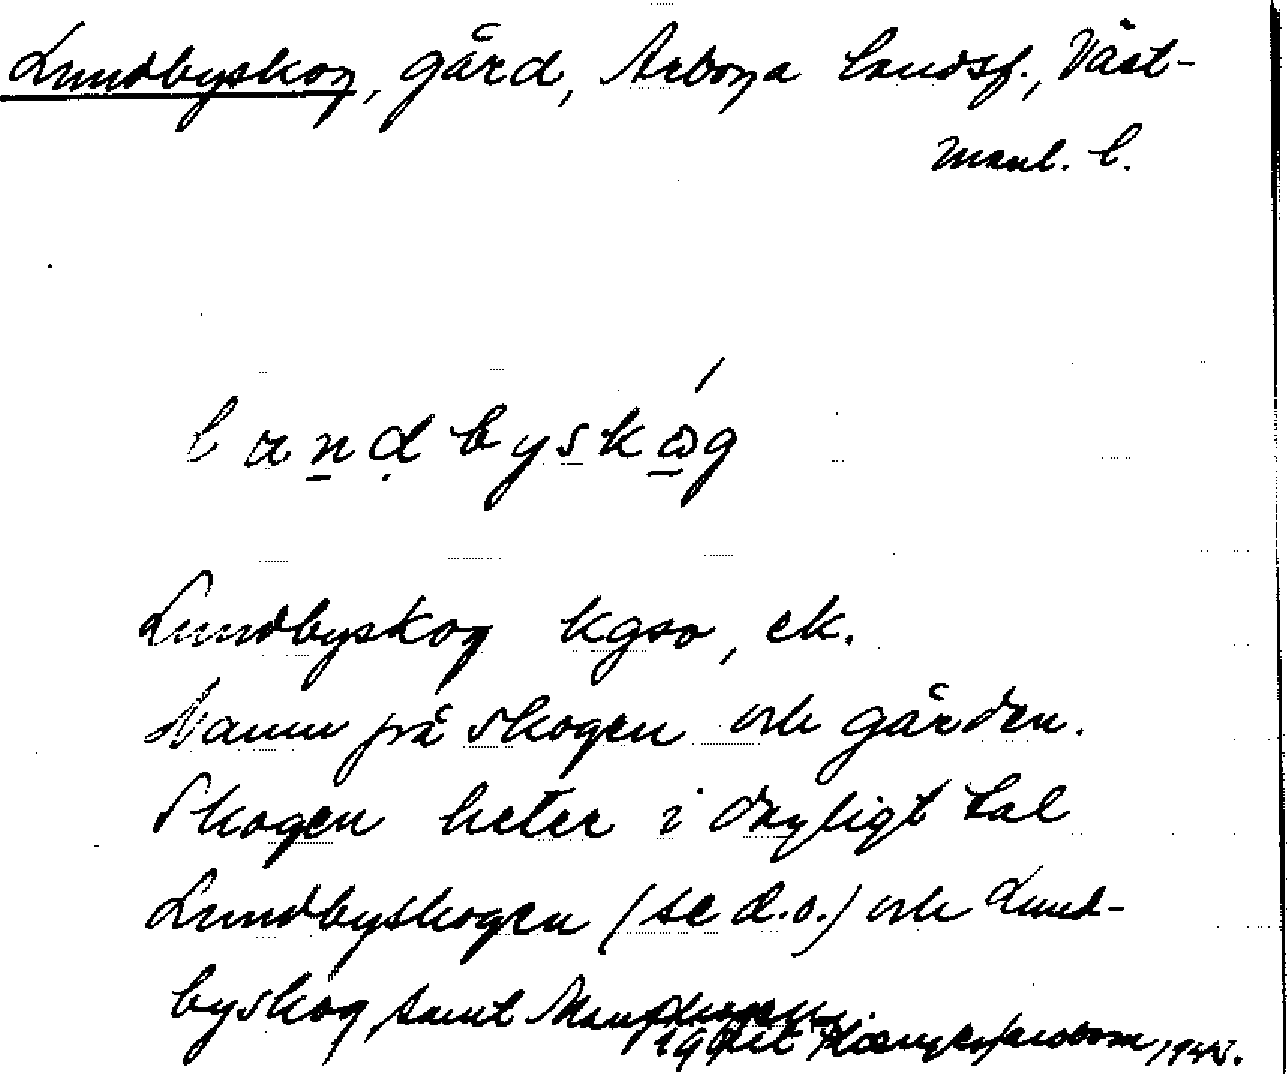 Lundbyskog, gård, Arboga landsf., Väst-
manl. l.
landbyskåg
Lundbyskog kgso, ek.
Namn på skogen och gården.
Skogen heter i dagligt tal
Lundbyskogen (se d.o.) och Lund-
byskog samt